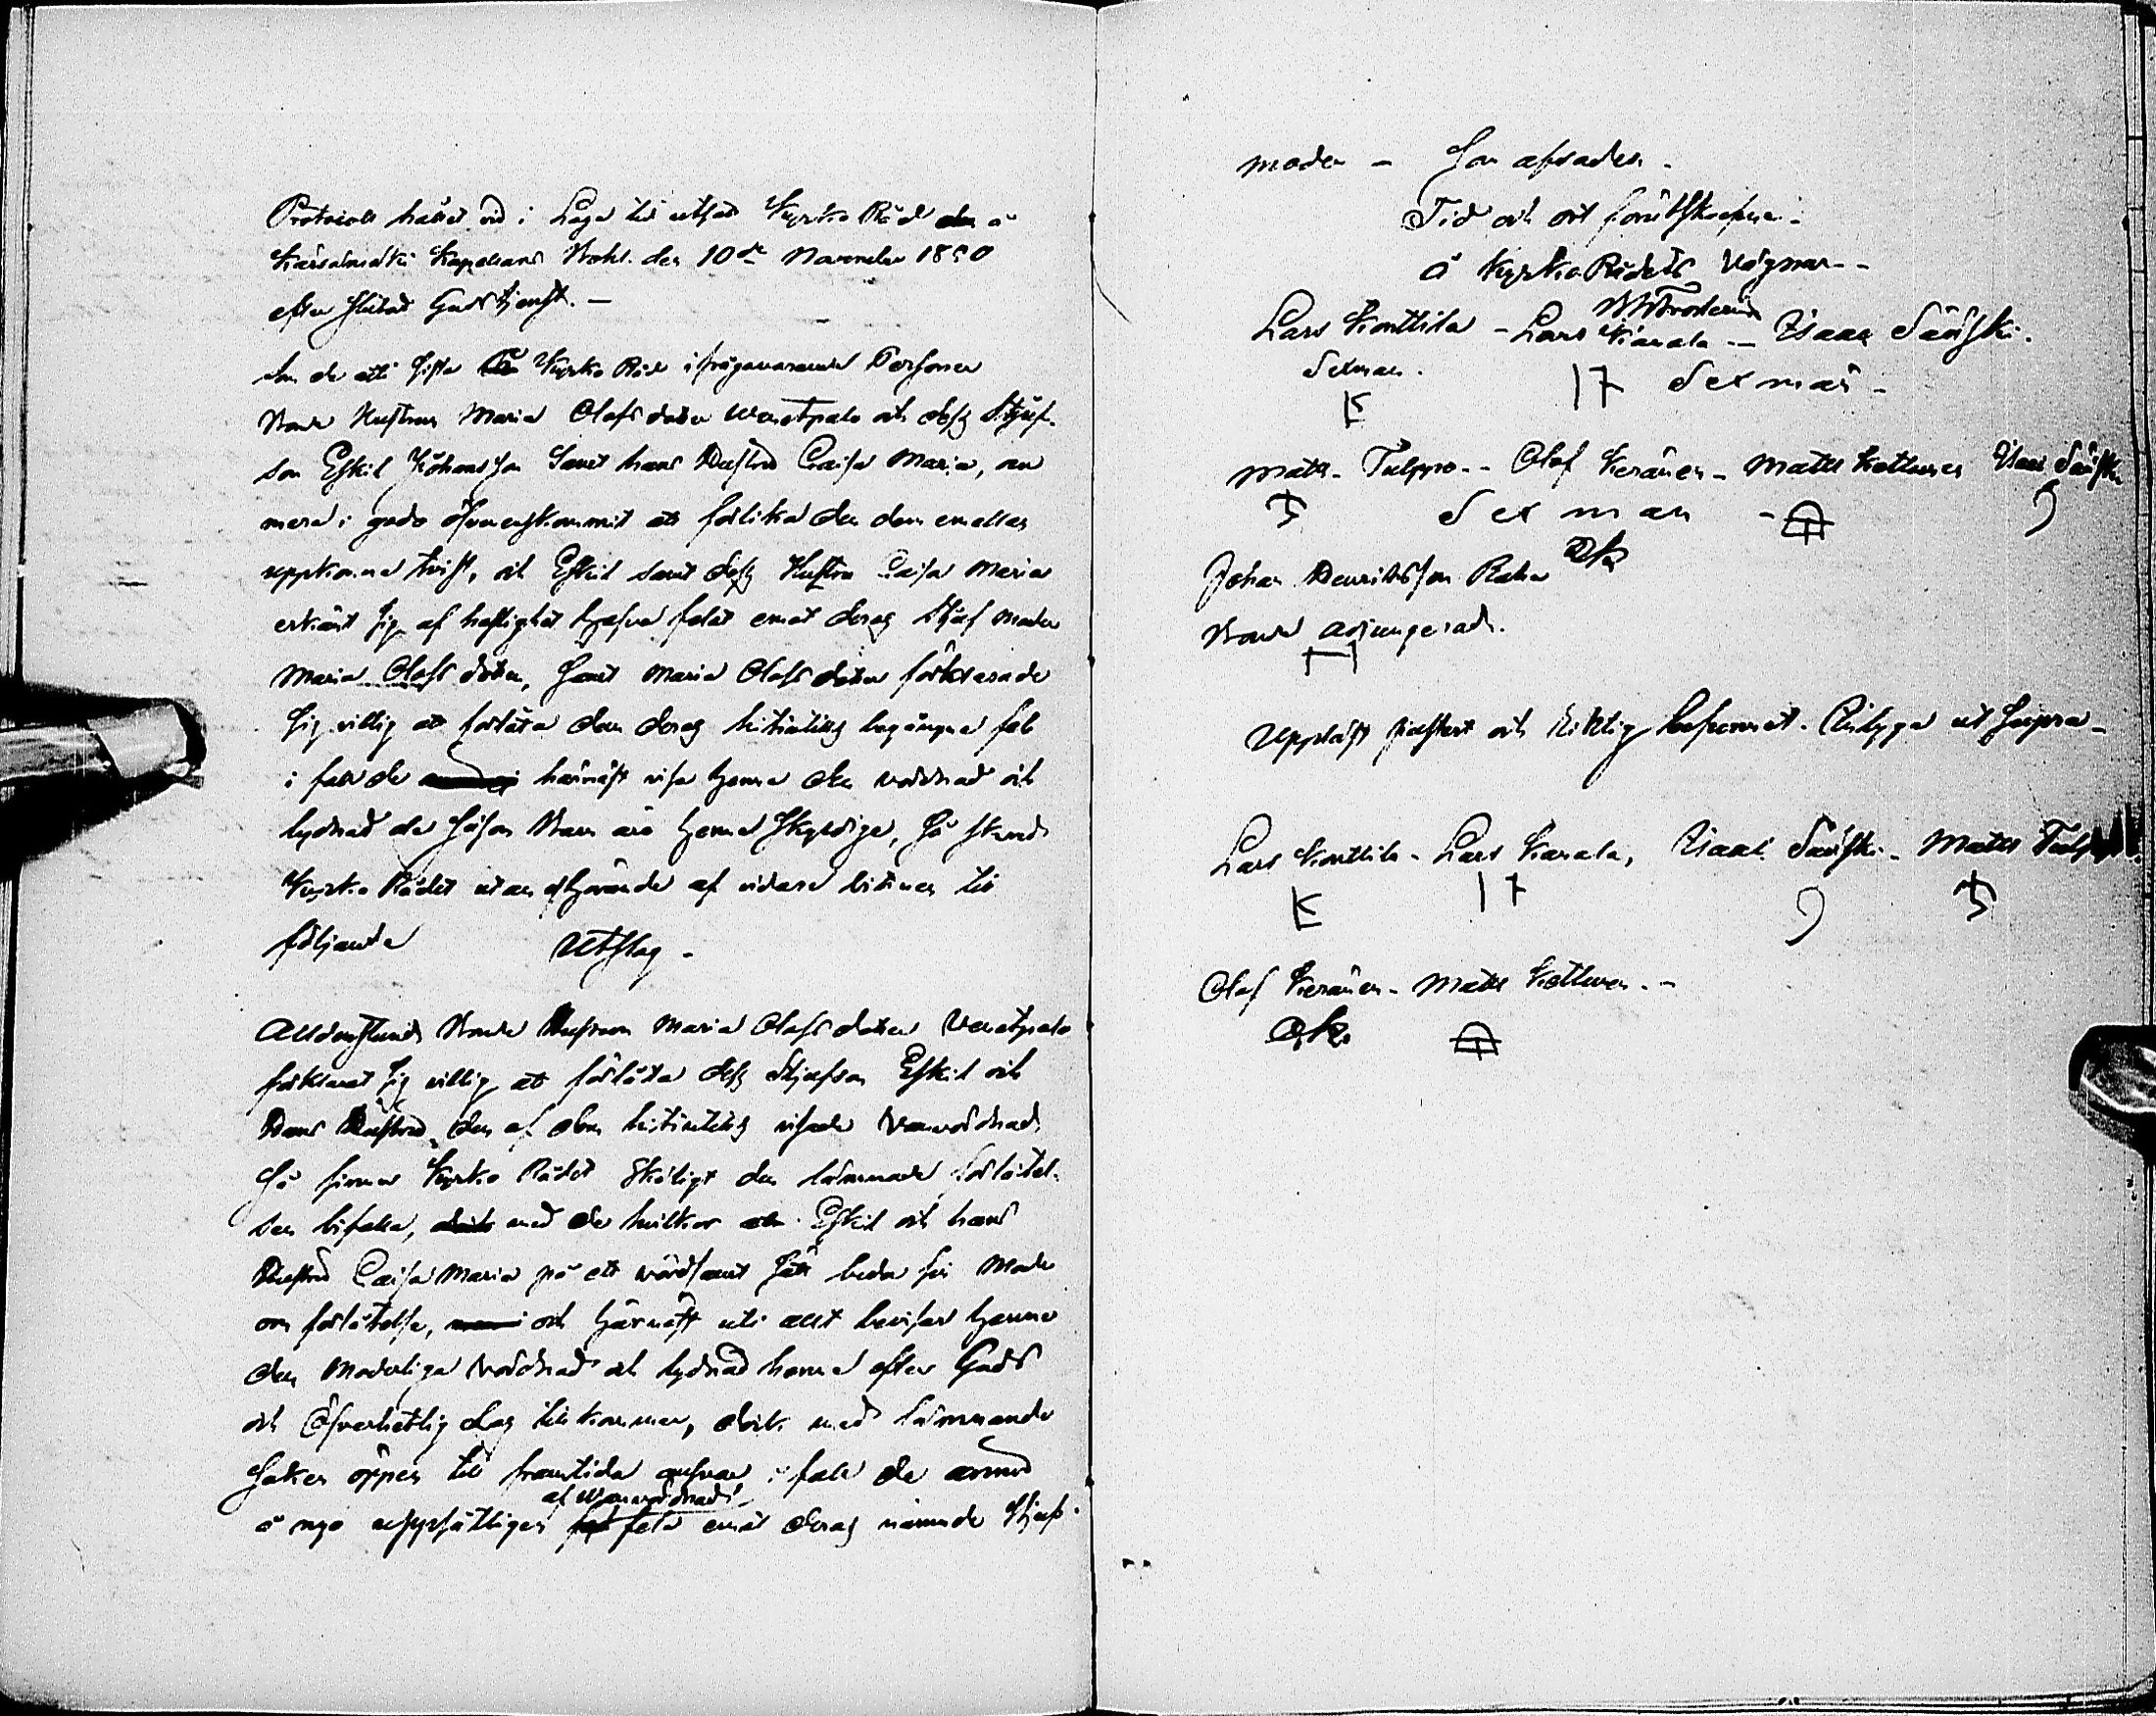 Protocoll hållet vid i Laga tid utsatt Kyrko Råd å
Kärsämäki Kapellans Bohl. den 10de November 1850
efter slutad Gudstjenst. —
Kyrko Råd ifrågavarande Personer
Bonde Hustrun Maria Olofsdotter Venetpalo och dess Styf-
son Eskil Johansson samt hans Hustru Caisa Maria, nu
mera i godo öfverenskommit att förlika den dem emellan
uppkomne tvist, och Eskil samt dess Hustru Caisa Maria
erkänt sig af häftighet hafva felat emot deras Styf moder
Maria Olofsdotter, samt Maria Olofsdotter förklarade
sig villig att förlåta dem deras hitintills begångne fel
i fall de härnäst visa henne den vördnad och
lydnad de såsom Barn äro henne skyldige, så skreds
Kyrko Rådet utan afhörande af vidare vittnen till
följande Utslag -
Alldenstund Bonde Hustrun Maria Olofsdotter Venetpalo
förklarat sig villig att förlåta dess Styfson Eskil och
Hans Hustru, den af dem hitintills visade vanvördnad
så finner Kyrko Rådet skäligt den lämnade förlåtel-
sen bifalla, med de villkor Eskil och hans
Hustru Caisa Maria på ett vördsamt sätt beda sin Moder
om förlåtelse, och härnäst uti allt bevisar henne
den Moderliga vördnad och lydnad henne efter Guds
och Öfverhetlig Lag tillkommer, dock med lämnande
saken öppen till framtida ansvar i fall de
af Wanvördnad
å nyo uppsåtligen fela emot deras nämnde Styf-
moder - som afsades.
Tid och ort förutskrefne -
å Kyrko Rådets vägnar -
Lars Konttila - Lars Karala - Isaac Säiski.
Sexman. 17 Sexman -
K
Matts Tulppo - Olof Keränen - Matts Kottunen Isaac Säiski
Sexman
Johan Henriksson Raha
Bonde adjungerad.
Uppläst justerat och riktig befunnet. Ut supra -
Lars Konttila - Lars Karala, Isaac Säiski - Matts Tulppo
K 17
Olof Keränen - Matts Kottunen. -